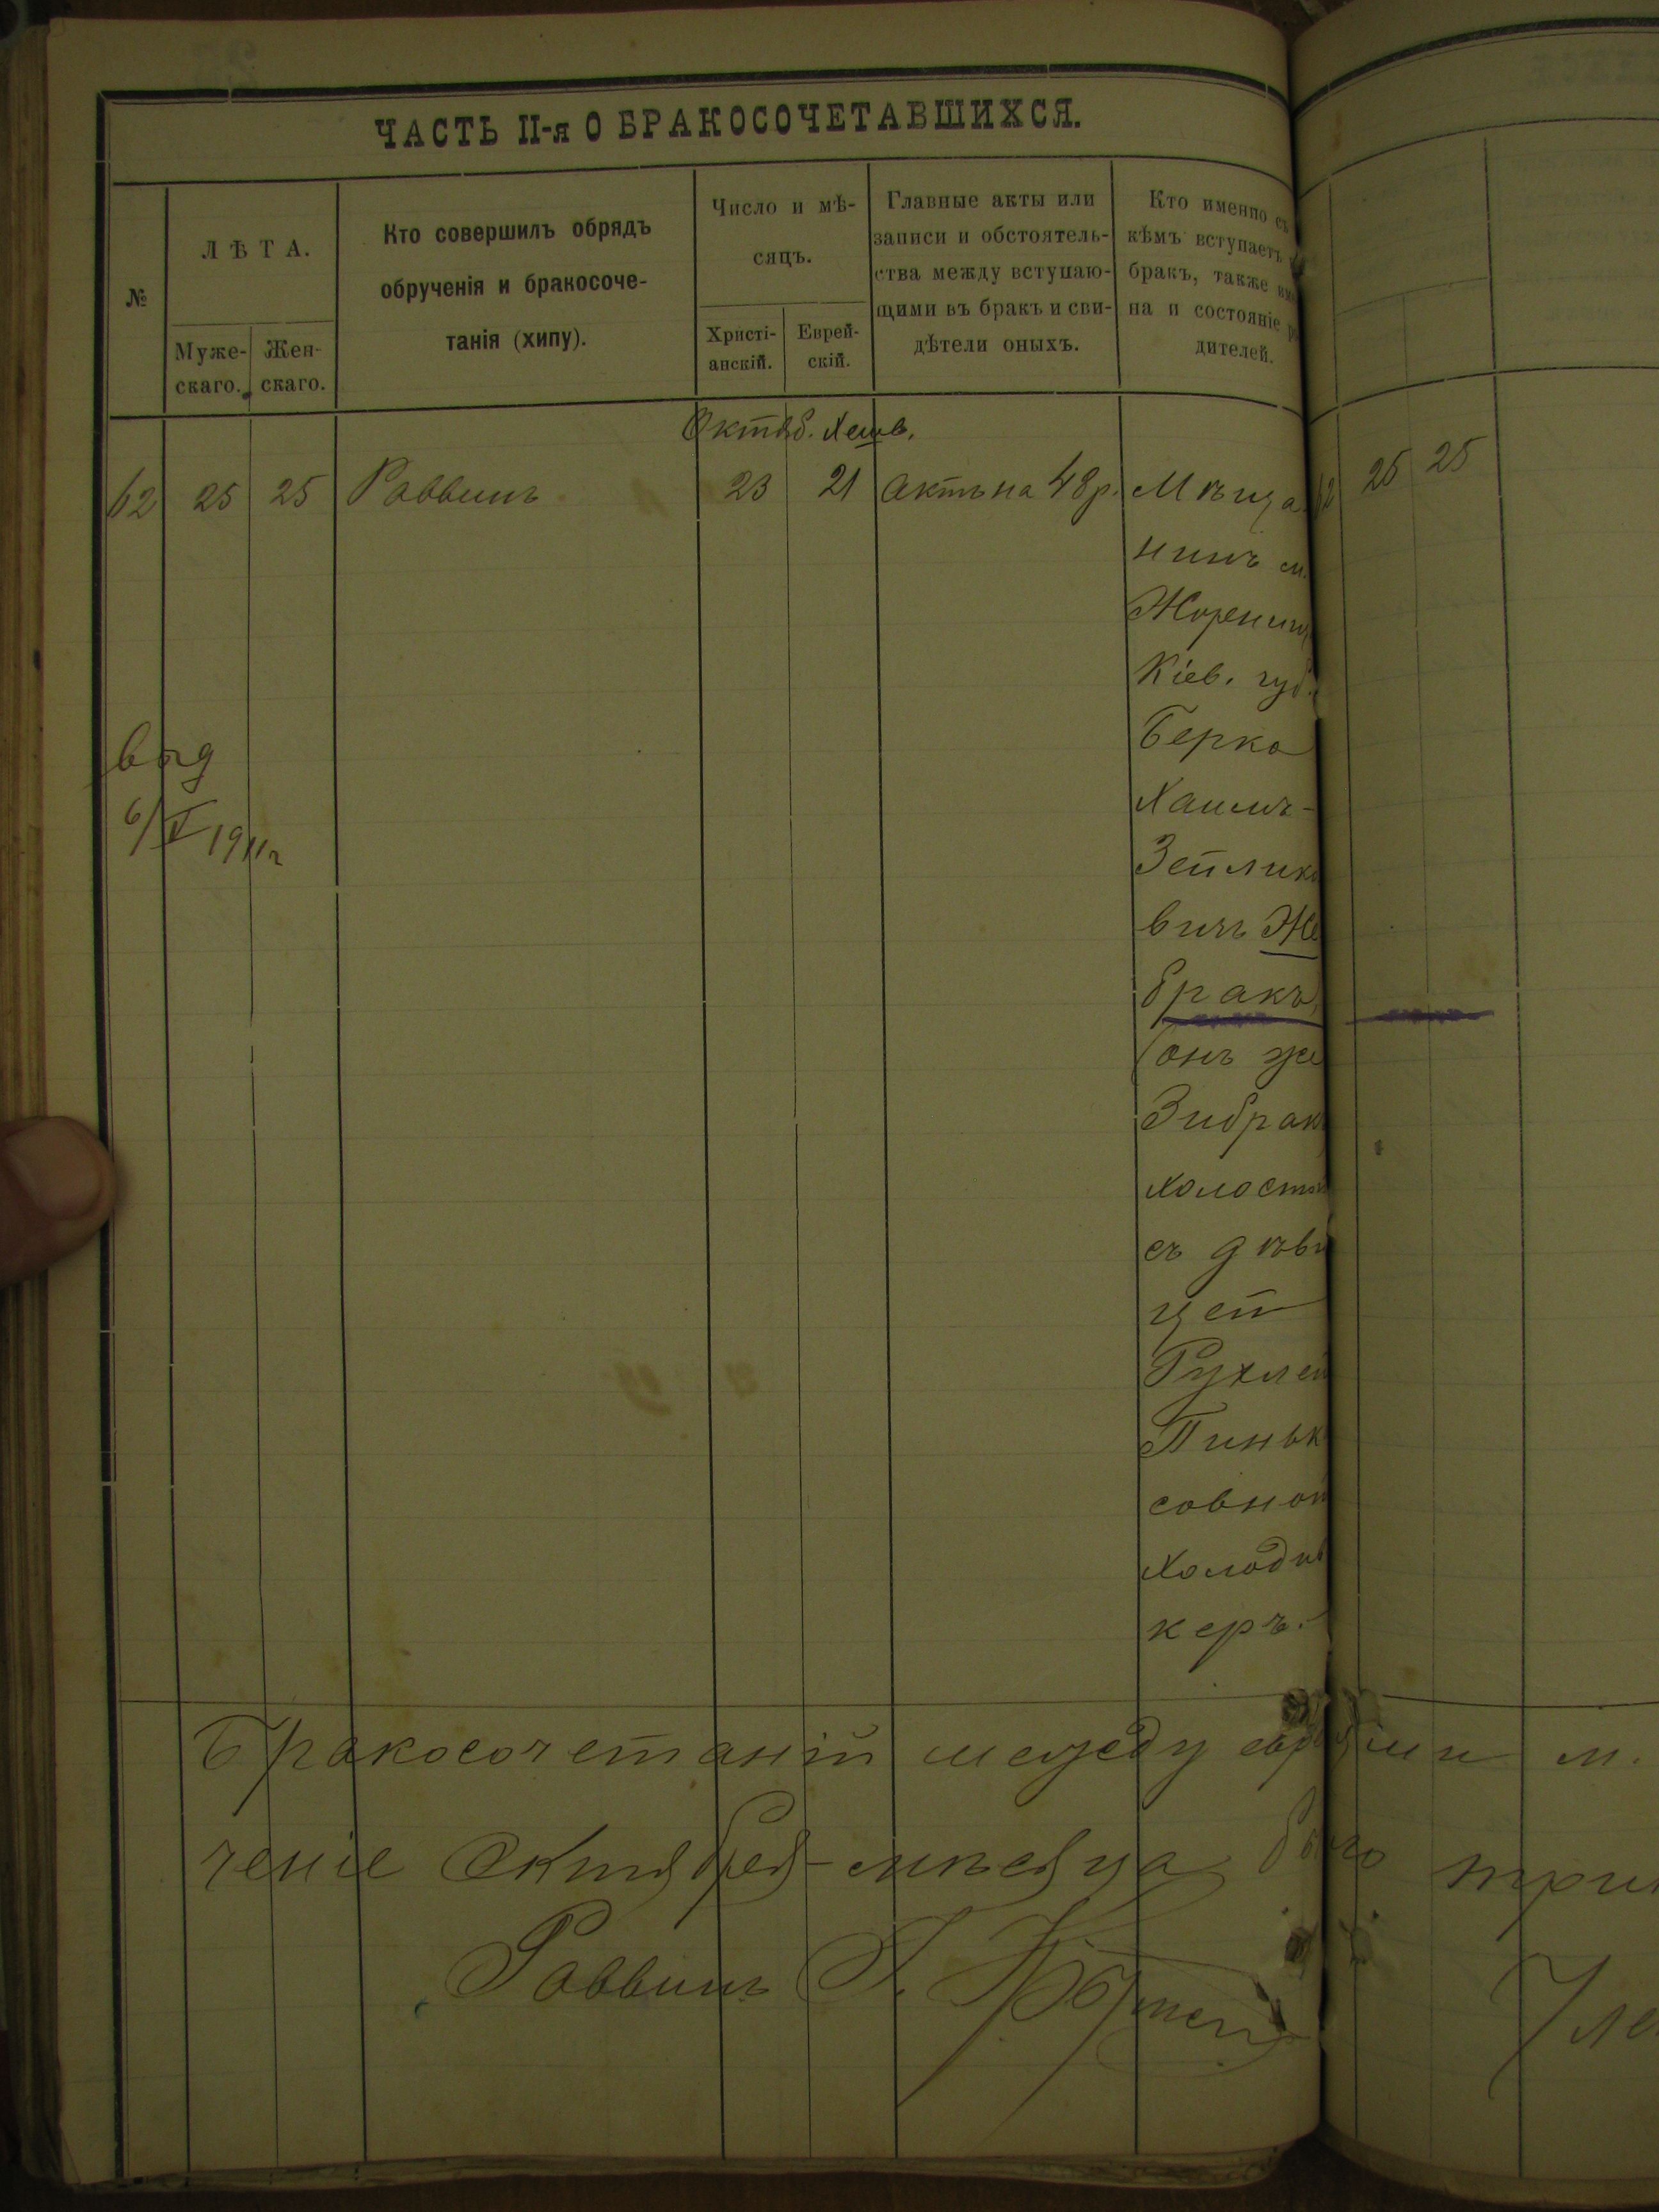 ЧАСТЬ II-я О БРАКОСОЧЕТАВШИХСЯ.
№
ЛѢТА.
Муже-
скаго.
Жен-
скаго.
Кто совершилъ обрядъ
обрученія и бракосоче-
танія (хипу).
Число и мѣ-
сяцъ.
Христі-
анскій.
Еврей-
скій.
Главные акты или
записи и обстоятель-
ства между вступаю-
щими въ бракъ и сви-
дѣтели оныхъ.
Кто именно съ
кѣмъ вступаетъ
бракъ, также
на и состояніе
дителей.
Октяб. Хешв.
62 25 25 Раввинъ 23 21 Актъ на 48 р. Мѣща
нинъ м.
Кіев. губ.
Берко
Хаимъ-
Зейлико
вичъ Же
бракъ,
(онъ же
Зибракъ
холостъ
съ дѣви
цей
Рухлей
Пиньк
совной
керъ.
выд
6/V 1911 г
62 25 25
Бракосочетаній между евреями м.
ченіе Октября мѣсяца было
Раввинъ